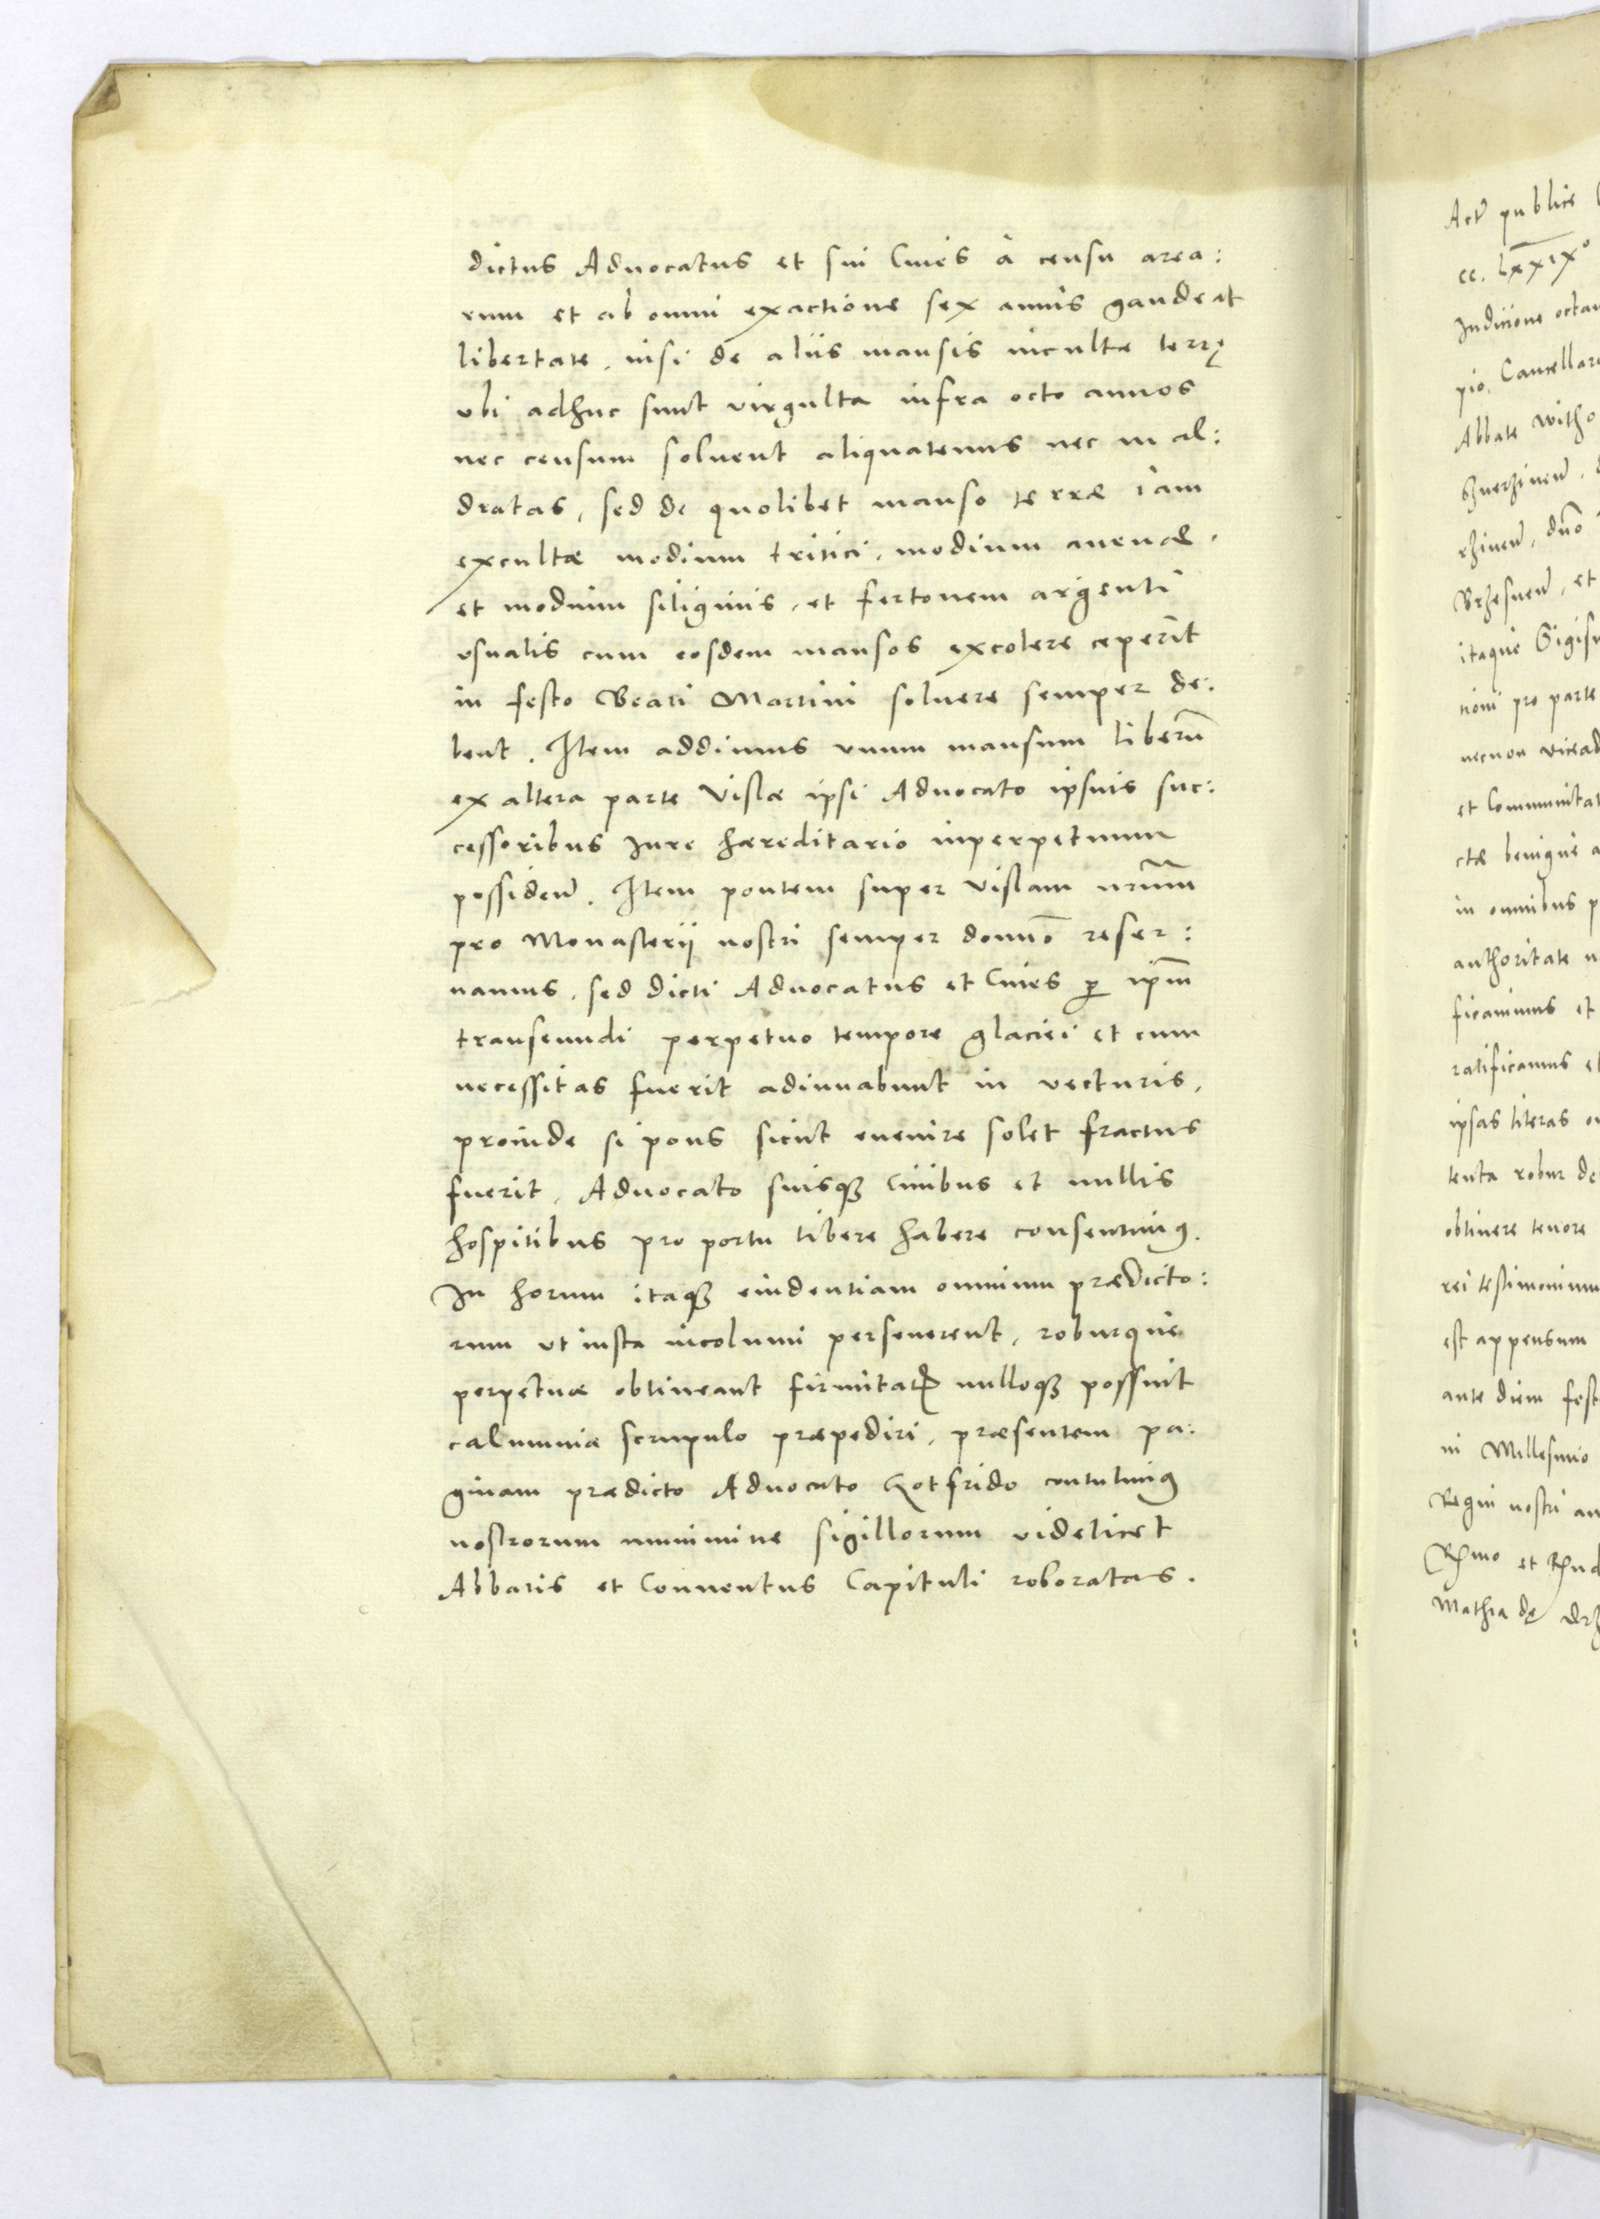 dictus Advocatus et sui Cives à censu area:
rum et ab omni exactione sex annis gaudeat
libertate, nisi de aliis mansis incultæ terrę
ubi adhuc sunt virgulta infra octo annos
nec censum solvent aliquatenus nec in al:
dratas, sed de quolibet manso terræ iam
excultæ modium tritici, modium avenæ,
et modium siliginis, et fertonem argenti
vsualis cum eosdem mansos excolere ceperint
in festo Beati Martini solvere semper de:
bent. Item addimus vnum mansum liberũ
ex altera parte Vislæ ipsi Advocato ipsuis suc:
cessoribus Jure hæreditario inperpetuum
possideñ. Item pontem super Vislam nr̃um
pro Monasterij nostri semper domo reser:
vamus, sed dicti Advocatus et Cives p̱ ip̃m
transeundi perpetuo tempore glaciei et cum
necessitas fuerit adiuvabunt in vecturis,
proinde si pons sicut evenire solet fractus
fuerit, Advocato suisq̃ Civibus et nullis
hospitibus pro portu libere habere consentimꝰ.
In horum itaq̃ evidentiam omnium prædicto:
rum ut iusta incolumi perseverent, roburque
perpetuæ obtineant firmitatis nulloq̃ possint
calumniæ scrupulo præpediri, præsentem pa:
ginam prædicto Advocato Gotfrido contulimꝰ
nostrorum munimine sigillorum videlicet
Abbatis et Conventus Capituli roboratas.
Act̃ publice
cc. lxxix°
Indicione octav
pio, Cancellar
Abbate Witho
rzineñ, dño
Brzesneñ, et
itaque Sigis
tioni pro parte
necnon vicead
et Communitat
ctæ benigne a
in omnibus p
authoritate n
ficavimus et
ratificamus et
ipsas literas o
tenta robur de
obtinere tenore
rei testimonium
est appensum
ante diem fest
ni Millesimo
Regni nostri an
Mathia dę